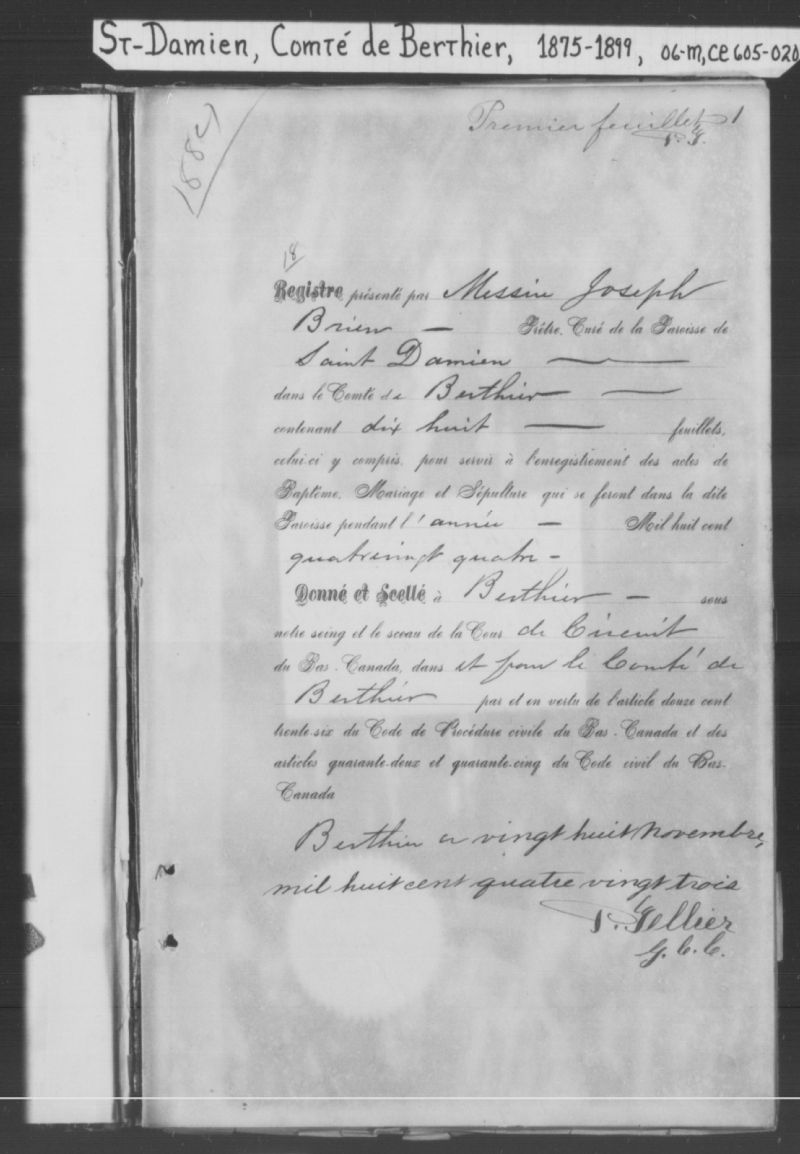 St-Damien, Comté de Berthier, 1875-1899, 06-M, CE605-020
1884
Premier feuillet 1
P. T.
18
Registre présenté par Messire Joseph
Brien — Prêtre, Curé de la Paroisse de
Saint Damien —
dans le Comté de Berthier —
contenant dix huit — feuillets,
celui-ci y compris, pour servir à l'enregistrement des actes de
Baptême, Mariage et Sépulture qui se feront dans la dite
Paroisse pendant l'année — Mil huit cent
quatrevingt quatre -
Donné et Scellé à Berthier — sous
notre seing et le sceau de la Cour de Circuit
du Bas-Canada, dans et pour le Comté de
Berthier par et en vertu de l'article douze cent
trente-six du Code de Procédure civile du Bas-Canada et des
articles quarante-deux et quarante-cinq du Code civil du Bas-
Canada
Berthier ce vingt huit novembre,
mil huit cent quatre vingt trois
P. Tellier
G. C. C.